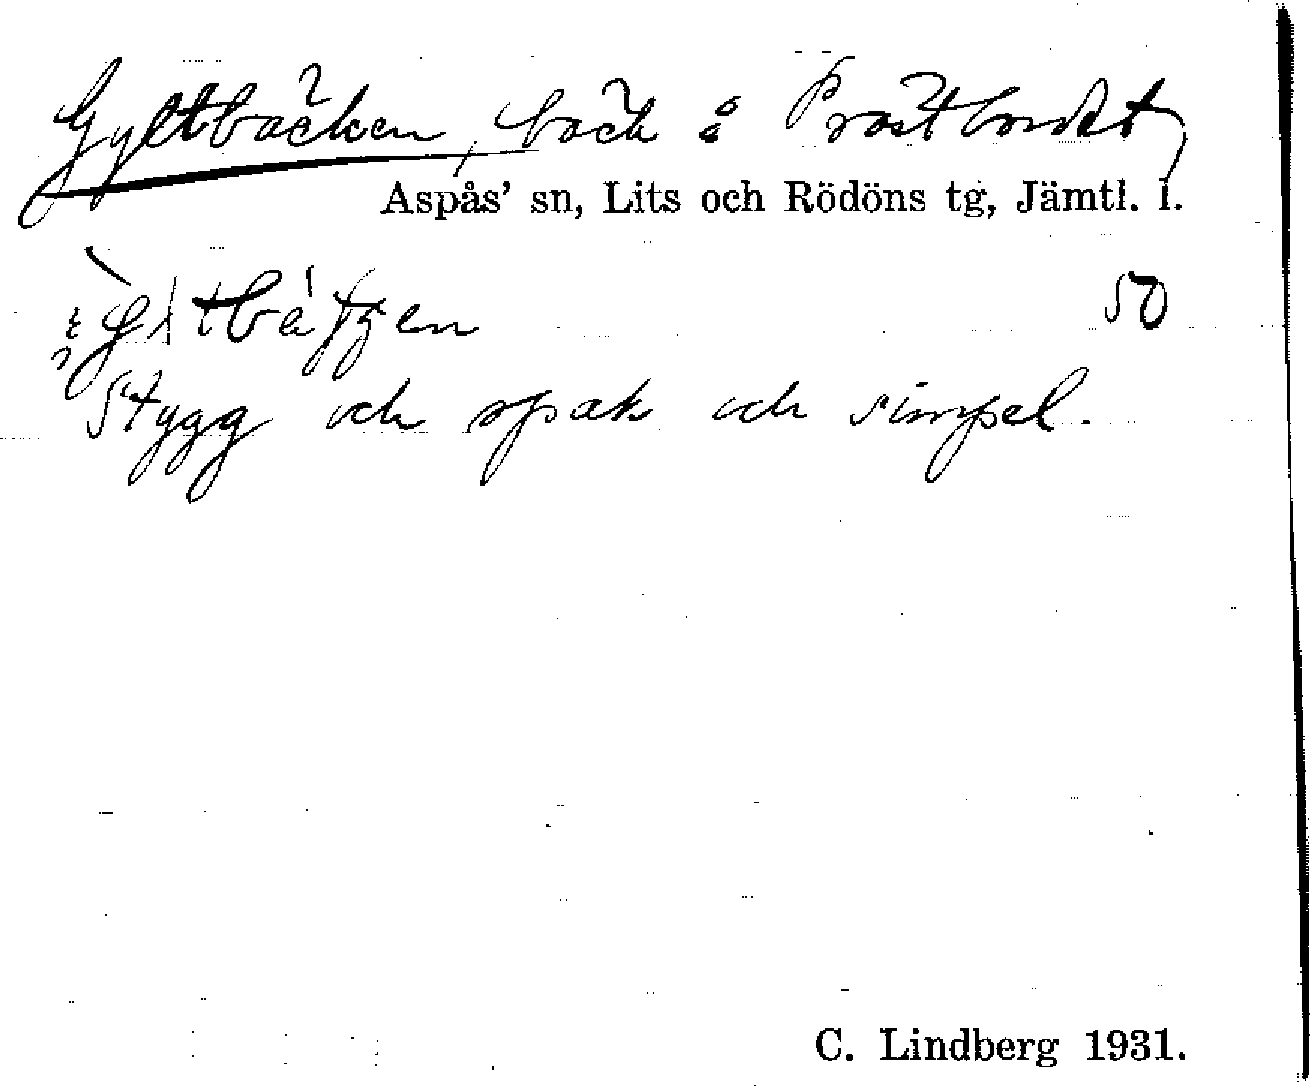 Gyltbäcken, bäck å Prästbordet,
Aspås' sn, Lits och Rödöns tg, Jämtl. l.
50
Stygg och spak och simpel.
C. Lindberg 1931.